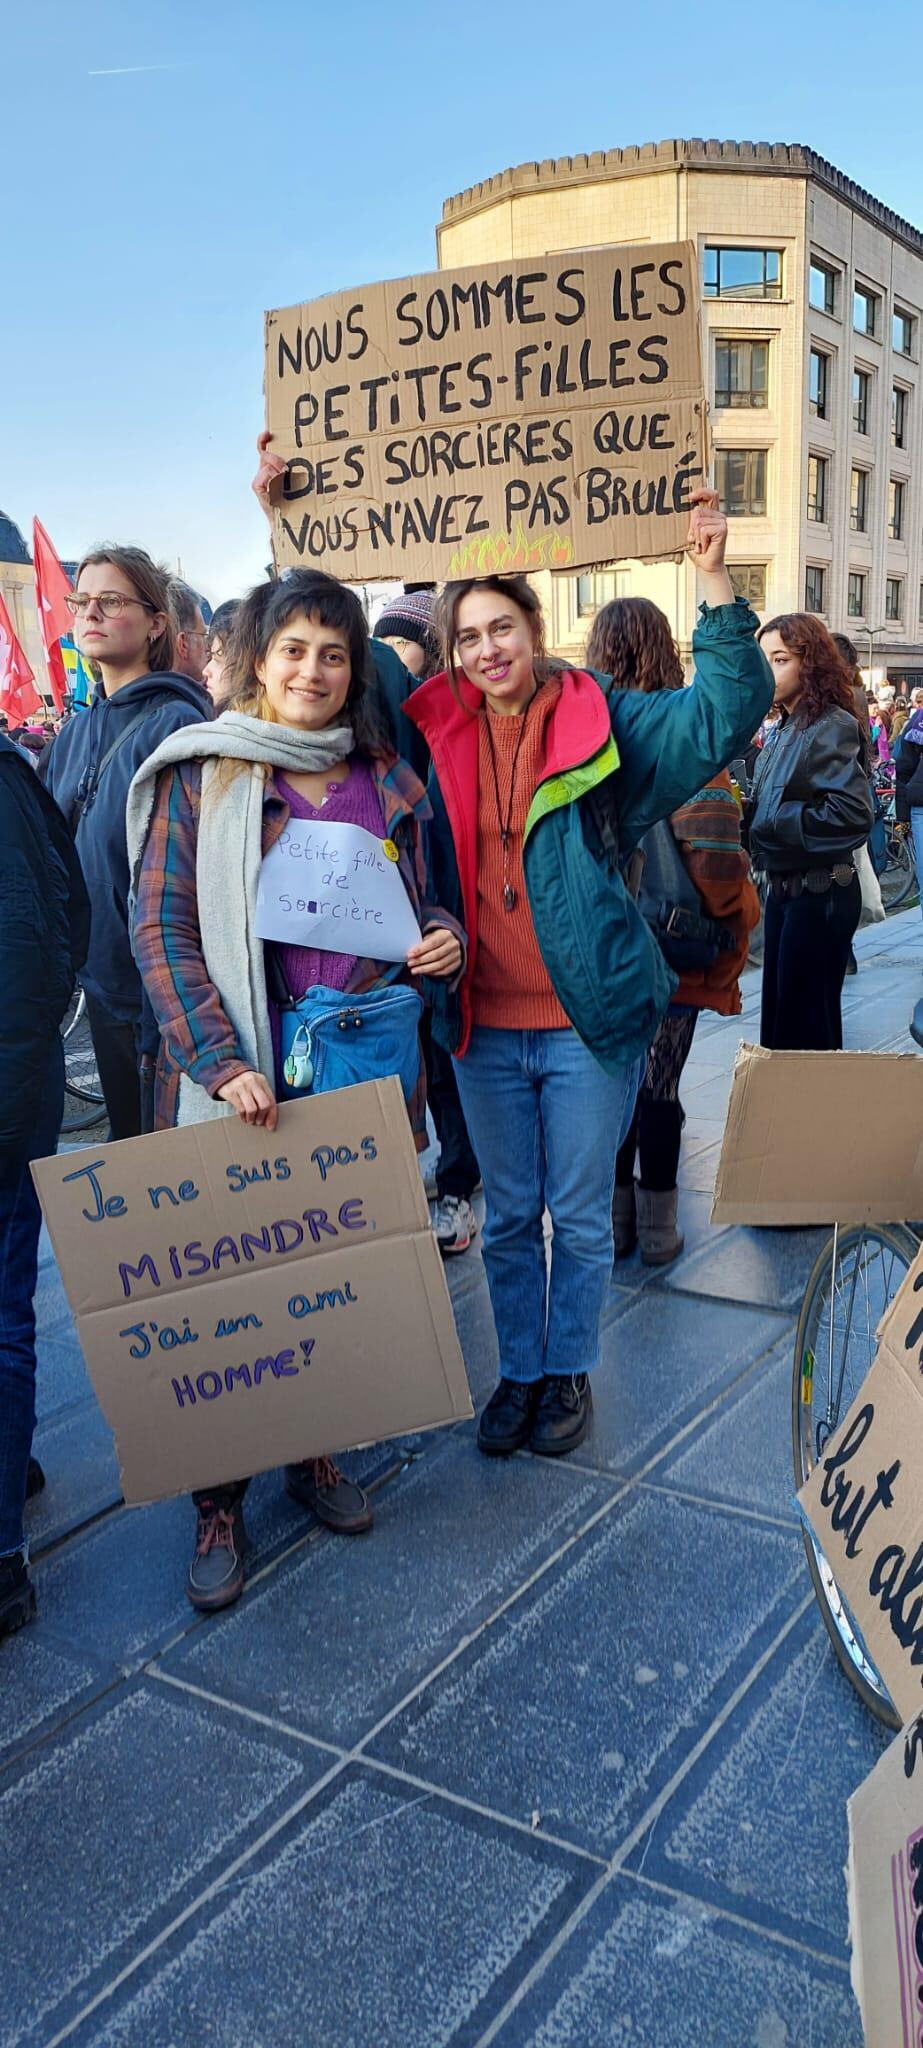 NOUS SOMMES LES
PETITES-FILLES
DES SORCIERES QUE
VOUS N'AVEZ PAS BRULÉ
Petite fille
de
sorcière
Je ne suis pas
MISANDRE,
J'ai un ami
HOMME!
but